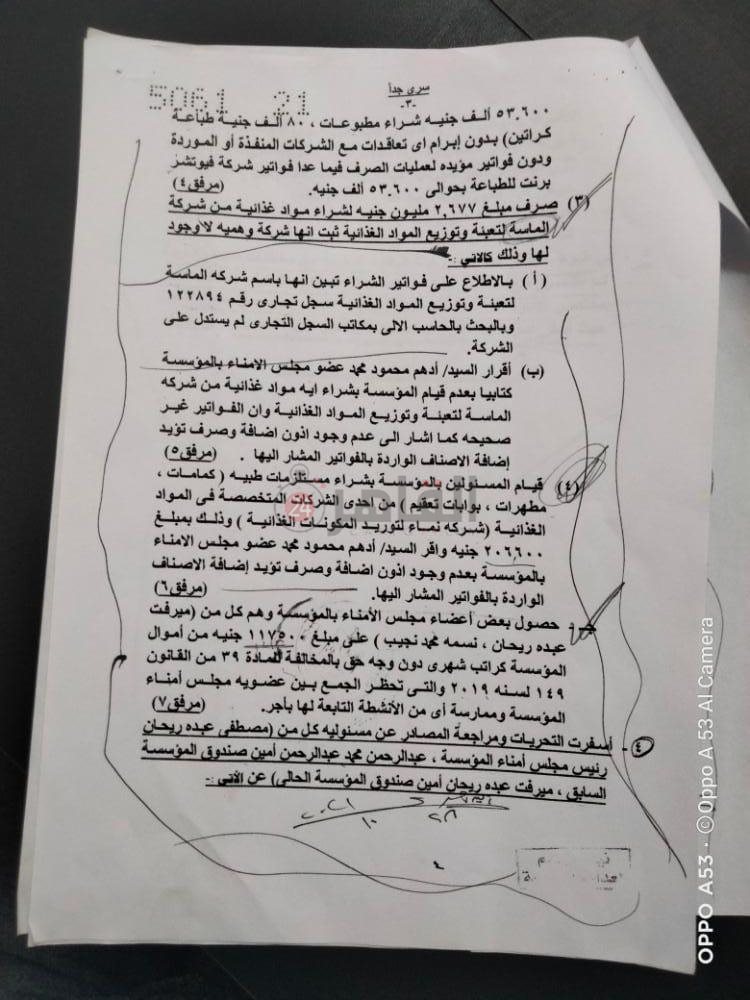 سرى جداً
-٣-
5061 21
٥٣.٦٠٠ ألف جنيه شراء مطبوعات ، ٨٠ ألف جنية طباعة
كراتين) بدون إبرام اى تعاقدات مع الشركات المنفذة أو الموردة
ودون فواتير مؤيده لعمليات الصرف فيما عدا فواتير شركة فيوتشر
برنت للطباعة بحوالى ٥٣.٦٠٠ ألف جنيه. (مرفق٤)
(٣) صرف مبلغ ٢,٦٧٧ مليون جنيه لشراء مواد غذائية من شركة
الماسة لتعبئة وتوزيع المواد الغذائية ثبت انها شركة وهميه لا وجود
لها وذلك كالاتي :-
(أ) بالاطلاع على فواتير الشراء تبين انها باسم شركه الماسة
لتعبئة وتوزيع المواد الغذائية سجل تجارى رقم ١٢٢٨٩٤
وبالبحث بالحاسب الالى بمكاتب السجل التجارى لم يستدل على
الشركة.
(ب) أقرار السيد/ أدهم محمود محمد عضو مجلس الامناء بالمؤسسة
كتابيا بعدم قيام المؤسسة بشراء ايه مواد غذائية من شركه
الماسة لتعبئة وتوزيع المواد الغذائية وان الفواتير غير
صحيحه كما اشار الى عدم وجود اذون اضافة وصرف تؤيد
إضافة الاصناف الواردة بالفواتير المشار اليها . (مرفق٥)
(٤) قيام المسئولين بالمؤسسة بشراء مستلزمات طبيه ( كمامات ،
مطهرات ، بوابات تعقيم ) من إحدى الشركات المتخصصة فى المواد
الغذائية (شركه نماء لتوريد المكونات الغذائية ) وذلك بمبلغ
٢٠٦,٦٠٠ جنيه واقر السيد/ أدهم محمود محمد عضو مجلس الامناء
بالمؤسسة بعدم وجود اذون اضافة وصرف تؤيد إضافة الاصناف
الواردة بالفواتير المشار اليها. (مرفق٦)
ج- حصول بعض أعضاء مجلس الأمناء بالمؤسسة وهم كل من (ميرفت
عبده ريحان ، نسمه محمد نجيب ) على مبلغ ١١٧٥٠٠ جنيه من أموال
المؤسسة كراتب شهرى دون وجه حق بالمخالفة للمادة ٣٩ من القانون
١٤٩ لسنه ٢٠١٩ والتى تحظر الجمع بين عضويه مجلس أمناء
المؤسسة وممارسة أى من الأنشطة التابعة لها بأجر. (مرفق٧)
٤- أسفرت التحريات ومراجعة المصادر عن مسئوليه كل من (مصطفى عبده ريحان
رئيس مجلس أمناء المؤسسة ، عبدالرحمن محمد عبدالرحمن أمين صندوق المؤسسة
السابق ، ميرفت عبده ريحان أمين صندوق المؤسسة الحالى) عن الأتي :-
القاهرة 24
OPPO A53 · ©Oppo A 53 AI Camera